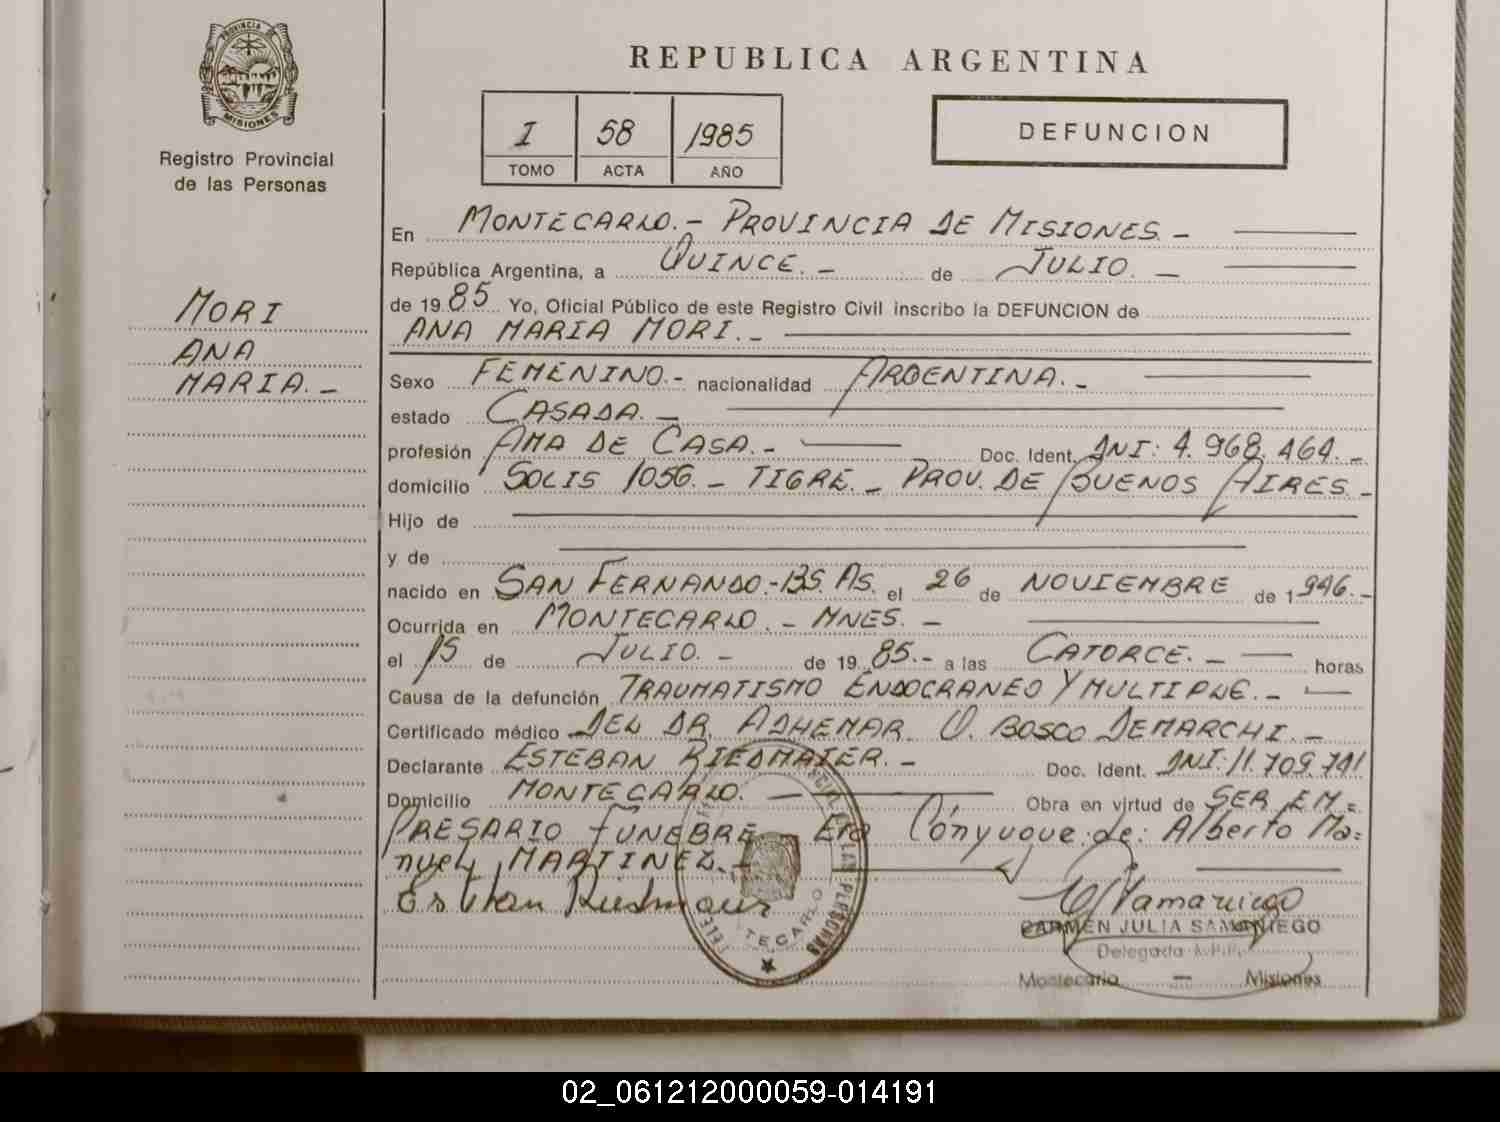 PROVINCIA DE
MISIONES
Registro Provincial
de las Personas
REPUBLICA ARGENTINA
I 58 1985
TOMO ACTA AÑO
DEFUNCION
MORI
ANA
MARIA.-
En MONTECARLO.- PROVINCIA DE MISIONES.-
República Argentina, a QUINCE.- de JULIO.-
de 1985 Yo, Oficial Público de este Registro Civil inscribo la DEFUNCION de
ANA MARIA MORI.-
Sexo FEMENINO.- nacionalidad ARGENTINA.-
estado CASADA.-
profesión AMA DE CASA.- Doc. Ident. DNI: 4.968.464.-
domicilio SOLIS 1056.- TIGRE.- PROV. DE BUENOS AIRES.-
Hijo de
y de
nacido en SAN FERNANDO.-BS. AS. el 26 de NOVIEMBRE de 1946.-
Ocurrida en MONTECARLO.- MNES.-
el 15 de JULIO.- de 1985.- a las CATORCE.- horas
Causa de la defunción TRAUMATISMO ENDOCRANEO Y MULTIPLE.-
Certificado médico DEL DR. ADHEMAR O. BOSCO DEMARCHI.-
Declarante ESTEBAN RIEDMAIER.- Doc. Ident. DNI: 11.709.741
Domicilio MONTECARLO.- Obra en virtud de SER EM=
PRESARIO FUNEBRE Era Cónyugue de: Alberto Ma=
nuel MARTINEZ.-
Esteban Riedmaier
TECARLO
LAS PERSONAS
CARMEN JULIA SAMANIEGO
Delegada R.P.P.
Montecarlo - Misiones
02_061212000059-014191